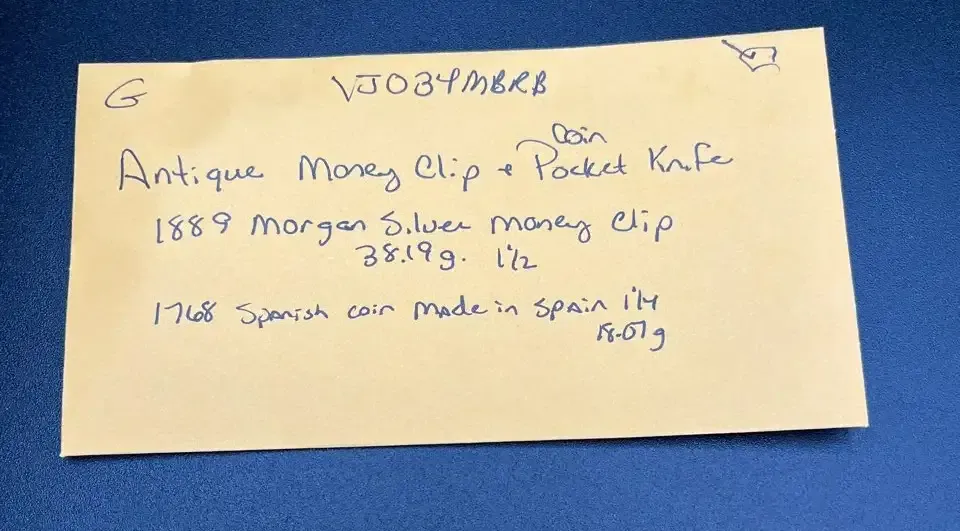 G
VJO34MBRB
Antique Money Clip + Coin Pocket Knife
1889 Morgan Silver Money Clip
38.19g. 1 1/2
1768 Spanish coin Made in Spain 1 1/4
18.07g